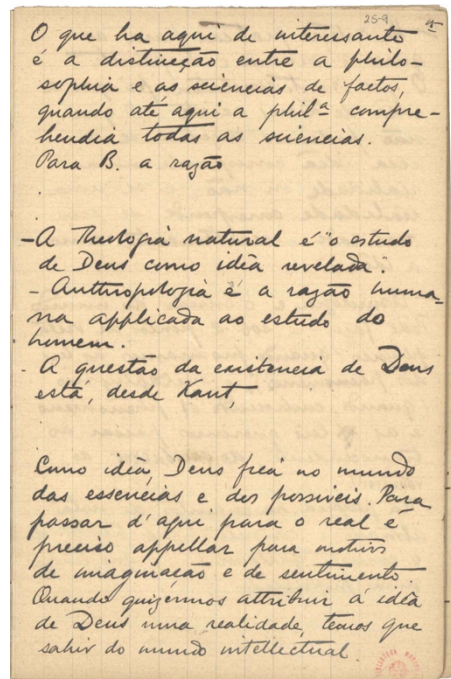 25-9
O que ha aqui de interessante
é a distincção entre a philo-
sophia e as sciencias de factos,
quando até aqui a philª compre-
hendia todas as sciencias.
Para B. a razão
.
.
– A Theologia natural é "o estudo
de Deus como idéa revelada".
– Anthropologia é a razão huma-
na applicada ao estudo do
homem.
- A questão da existencia de Deus
está, desde Kant,
.
Como idéa, Deus fica no mundo
das essencias e dos possiveis. Para
passar d'aqui para o real é
preciso appellar para motivos
de imaginação e de sentimento.
Quando quizermos attribuir á idéa
de Deus uma realidade, temos que
sahir do mundo intellectual.